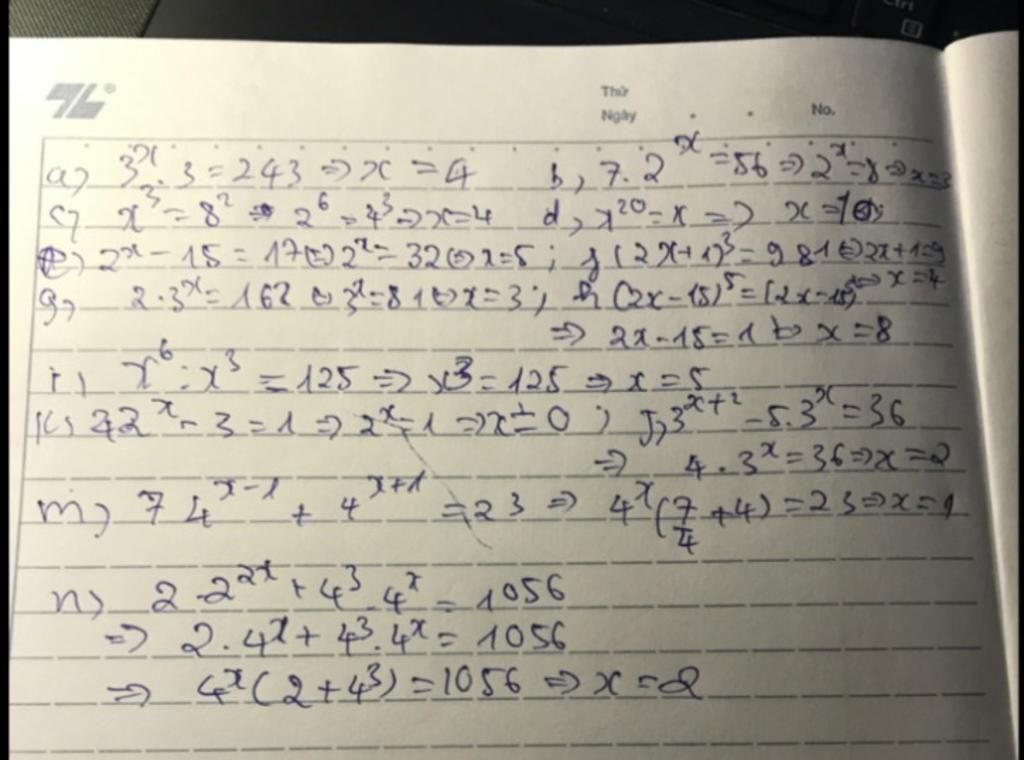 Ctrl
Thứ
Ngày . . No.
a) 3^x . 3 = 243 => x = 4 b, 7 . 2^x = 56 => 2^x = 8 => x = 3
c) x^3 = 8^2 => 2^6 = 4^3 => x = 4 d, x^20 = x => x = 1
e) 2^x - 15 = 17 <=> 2^x = 32 <=> x = 5 ; f (2x+1)^3 = 9 . 81 <=> 2x+1 = 9
g, 2 . 3^x = 162 <=> 3^x = 81 <=> x = 3 ; h (2x-15)^5 = (2x-15) <=> x = 4
=> 2x - 15 = 1 x = 8
i) x^6 : x^3 = 125 => x3 = 125 => x = 5
k) 2^x - 3 = 1 => 2^x = 1 => x = 0 ; J, 3^x+2 - 5.3^x = 36
=> 4 . 3^x = 36 => x = 2
m) 7 4^x-1 + 4^x+1 = 23 => 4^x (7/4 + 4) = 23 => x = 1
n) 2 . 2^2x + 4^3 . 4^x = 1056
=> 2 . 4^x + 4^3 . 4^x = 1056
=> 4^x (2 + 4^3) = 1056 => x = 2